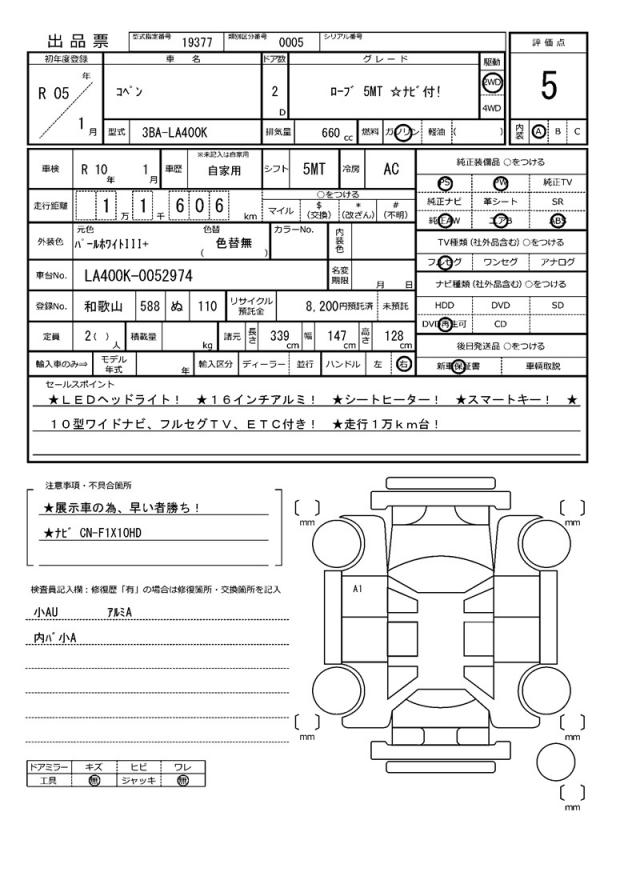 出品票 型式指定番号 19377 類別区分番号 0005 シリアル番号
初年度登録 車名 ドア数 グレード 駆動 評価点
R 05 年 1 月 コペン 2 D ローブ 5MT ☆ナビ付! 2WD 4WD 5
型式 3BA-LA400K 排気量 660 cc 燃料 ガソリン 軽油 ( ) 内装 A B C
車検 R 10 年 1 月 車歴 ※未記入は自家用 自家用 シフト 5MT 冷房 AC
走行距離 1 万 1 千 6 0 6 km ○をつける マイル $ (交換) * (改ざん) # (不明)
外装色 元色 パールホワイトIII+ 色替 ( 色替無 ) カラーNo. 内装色
車台No. LA400K-0052974 名変期限 月 日
登録No. 和歌山 588 ぬ 110 リサイクル預託金 8,200円預託済 未預託
定員 2( ) 人 積載量 kg 諸元 長さ 339 cm 幅 147 cm 高さ 128 cm
輸入車のみ⇒ モデル年式 年 輸入区分 ディーラー 並行 ハンドル 左 右
純正装備品 ○をつける
PS PW 純正TV
純正ナビ 革シート SR
純正AW エアB ABS
TV種類(社外品含む)○をつける
フルセグ ワンセグ アナログ
ナビ種類(社外品含む)○をつける
HDD DVD SD
DVD再生可 CD
後日発送品 ○をつける
新車保証書 車輌取説
セールスポイント
★LEDヘッドライト! ★16インチアルミ! ★シートヒーター! ★スマートキー! ★
10型ワイドナビ、フルセグTV、ETC付き! ★走行1万km台!
注意事項・不具合箇所
★展示車の為、早い者勝ち!
★ナビ CN-F1X10HD
検査員記入欄:修復歴「有」の場合は修復箇所・交換箇所を記入
小AU アルミA
内バ小A
ドアミラー キズ ヒビ ワレ
工具 無 ジャッキ 無
[ ] mm
[ ] mm
A1
[ ] mm
[ ] mm
[ ] mm